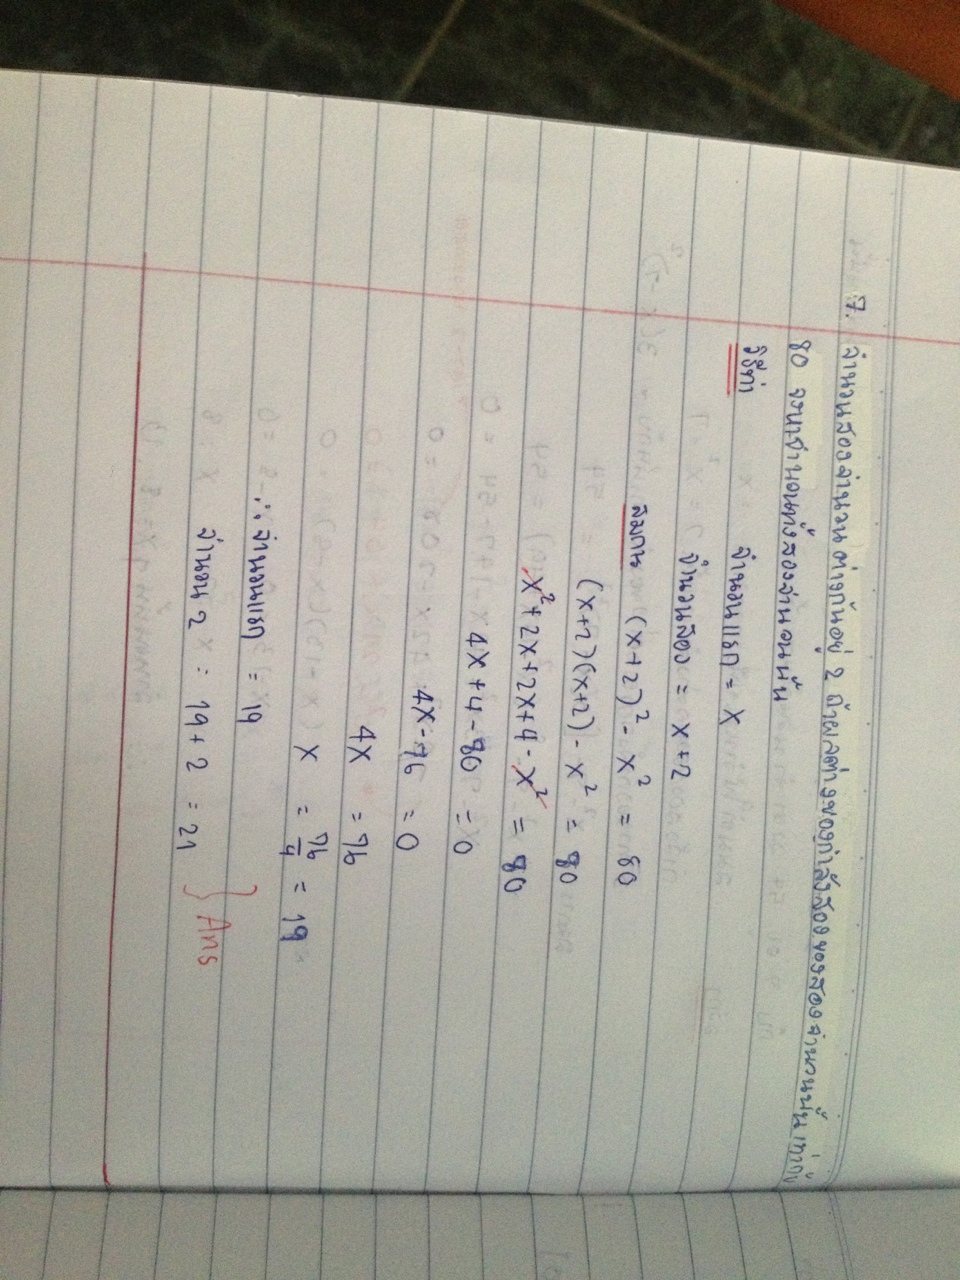 7. จำนวนสองจำนวนต่างกันอยู่ 2 ถ้าผลต่างของกำลังสองของสองจำนวนนั้นเท่ากับ
80 จงหาจำนวนทั้งสองจำนวนนั้น
วิธีทำ
จำนวนแรก = x
จำนวนสอง = x+2
สมการ (x+2)² - x² = 80
(x+2)(x+2) - x² = 80
x² + 2x + 2x + 4 - x² = 80
4x + 4 - 80 = 0
4x - 76 = 0
4x = 76
x = 76/4 = 19
∴ จำนวนแรก = 19
จำนวน 2 = 19 + 2 = 21 } Ans